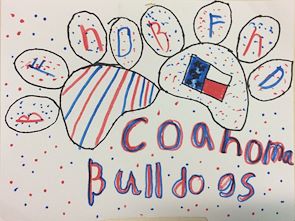 B F N D B F N D
Coahoma
Bulldogs